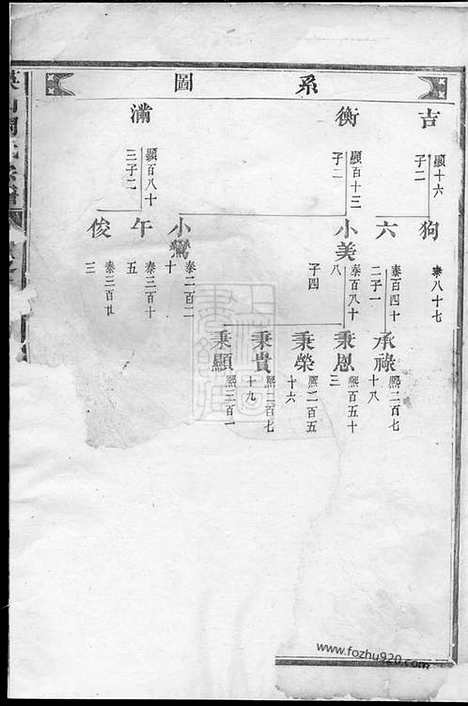 系圖
吉
顯十六
子二
狗
泰八十七
六
泰百四十
二子一
承祿
熙二百七
十八
衡
顯百十三
子二
小美
泰百八十
八
子四
秉恩
熙百五十
三
秉榮
熙二百五
十六
秉貴
熙二百七
十九
秉顯
熙三百一
小鸞
泰二百二
十
滿
顯百八十
三子二
午
泰三百十
五
俊
泰三百廿
三
www.fozhu920.com